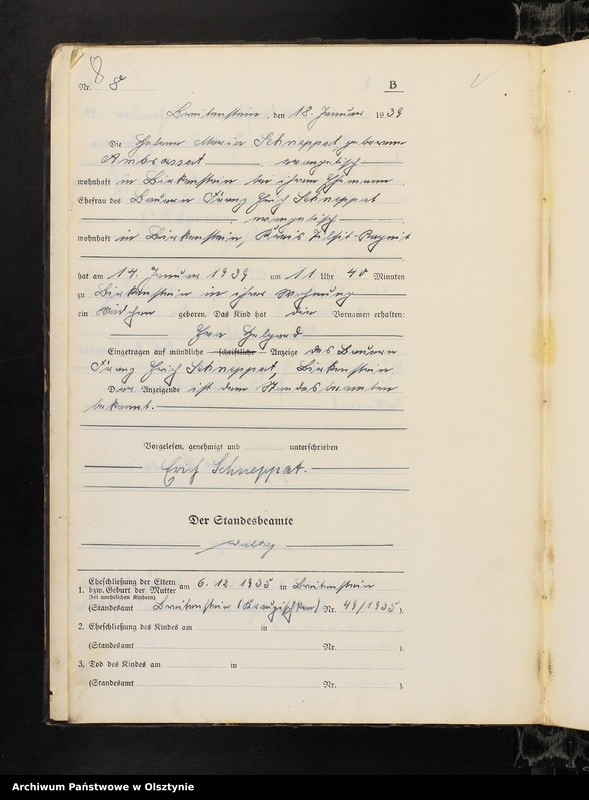 8
Nr. 8
B
Breitenstein, den 18. Januar 1939
Die Helene Maria Schneppat geborene
Ambrassat, evangelisch
wohnhaft in Birkenstein bei ihrem Ehemann,
Ehefrau des Bauern Franz Erich Schneppat
, evangelisch,
wohnhaft in Birkenstein, Kreis Tilsit-Ragnit
hat am 14. Januar 1939 um 11 Uhr 40 Minuten
zu Birkenstein in ihrer Wohnung
ein Mädchen geboren. Das Kind hat die Vornamen erhalten:
Eva Helgard
Eingetragen auf mündliche – schriftliche – Anzeige des Bauern
Franz Erich Schneppat, Birkenstein
Der Anzeigende ist dem Standesbeamten
bekannt.
Vorgelesen, genehmigt und unterschrieben
Erich Schneppat.
Der Standesbeamte
1. Eheschließung der Eltern
bzw. Geburt der Mutter am 6.12.1935 in Breitenstein
(bei unehelichen Kindern)
(Standesamt Breitenstein (Kraupischken) Nr. 49/1935).
2. Eheschließung des Kindes am in
(Standesamt Nr. ).
3. Tod des Kindes am in
(Standesamt Nr. ).
Archiwum Państwowe w Olsztynie